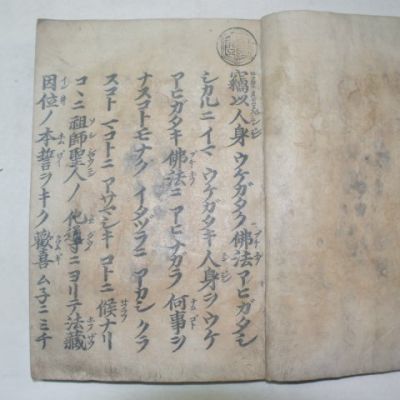 竊以人身ウケガタク佛法アヒガタシ
シカルニイマウケガタキ人身ヲウケ
アヒガタキ佛法ニアヒナガラ何事ヲ
ナスコトモナクイタヅラニアカシクラ
スコトマコトニアサマシキコトニ候ナリ
コヽニ祖師聖人ノ他導ニヨリテ法藏
因位ノ本誓ヲキク歡喜ムネニミチ